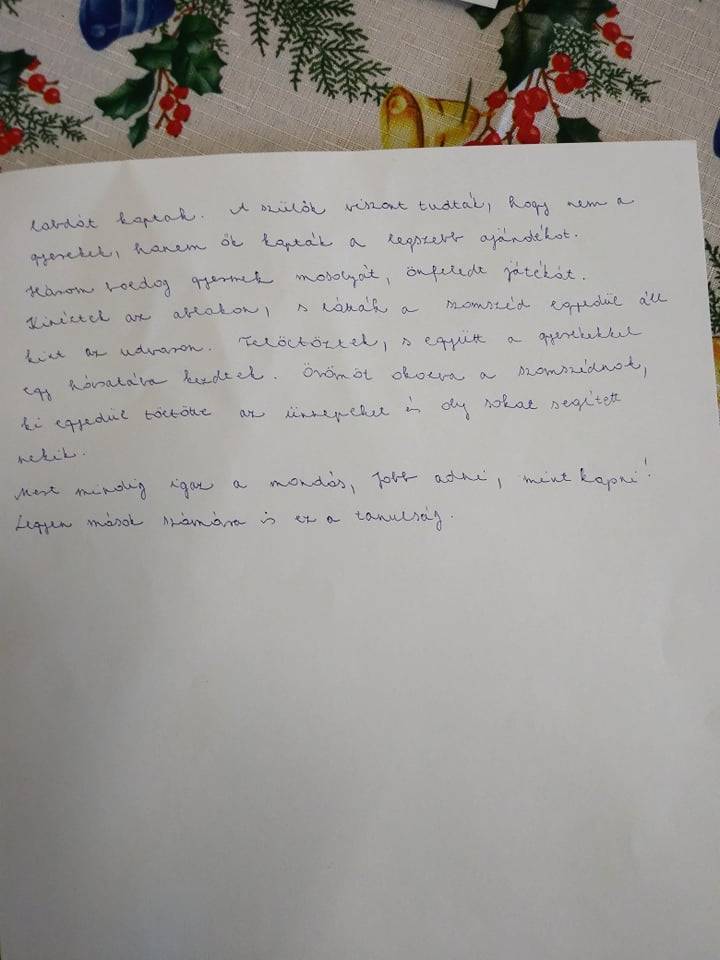 labdát kaptak. A szülők viszont tudták, hogy nem a
gyerekek, hanem ők kapták a legszebb ajándékot.
Három boldog gyermek mosolyát, önfeledt játékát.
Kinéztek az ablakon, s látták a szomszéd egyedül áll
kint az udvaron. Felöltöztek, s együtt a gyerekekkel
egy hócsatába kezdtek. Örömöt okozva a szomszédnak,
ki egyedül töltötte az ünnepeket és oly sokat segített
nekik.
Mert mindig igaz a mondás, jobb adni, mint kapni!
Legyen mások számára is ez a tanulság.